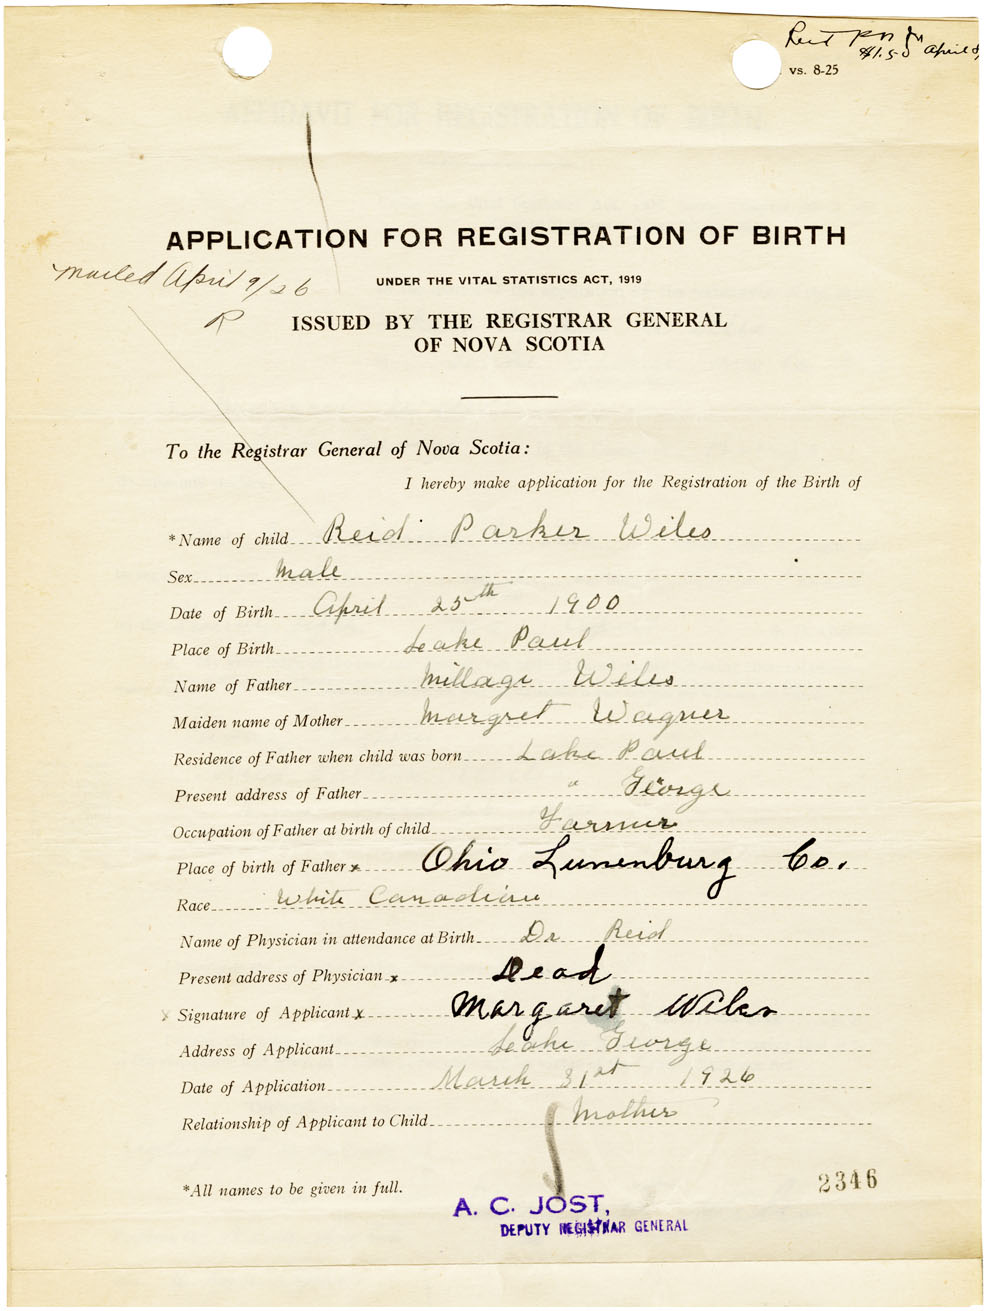 Rect
$1.50 April 8,
vs. 8-25
APPLICATION FOR REGISTRATION OF BIRTH
mailed April 9/26
UNDER THE VITAL STATISTICS ACT, 1919
R
ISSUED BY THE REGISTRAR GENERAL
OF NOVA SCOTIA
To the Registrar General of Nova Scotia:
I hereby make application for the Registration of the Birth of
*Name of child Reid Parker Wiles
Sex Male
Date of Birth April 25th 1900
Place of Birth Lake Paul
Name of Father Millage Wiles
Maiden name of Mother Margret Wagner
Residence of Father when child was born Lake Paul
Present address of Father " George
Occupation of Father at birth of child Farmer
Place of birth of Father x Ohio Lunenburg Co.
Race White Canadian
Name of Physician in attendance at Birth Dr Reid
Present address of Physician x Dead
x Signature of Applicant x Margaret Wiles
Address of Applicant Lake George
Date of Application March 31st 1926
Relationship of Applicant to Child Mother
*All names to be given in full.
2346
A. C. JOST,
DEPUTY REGISTRAR GENERAL